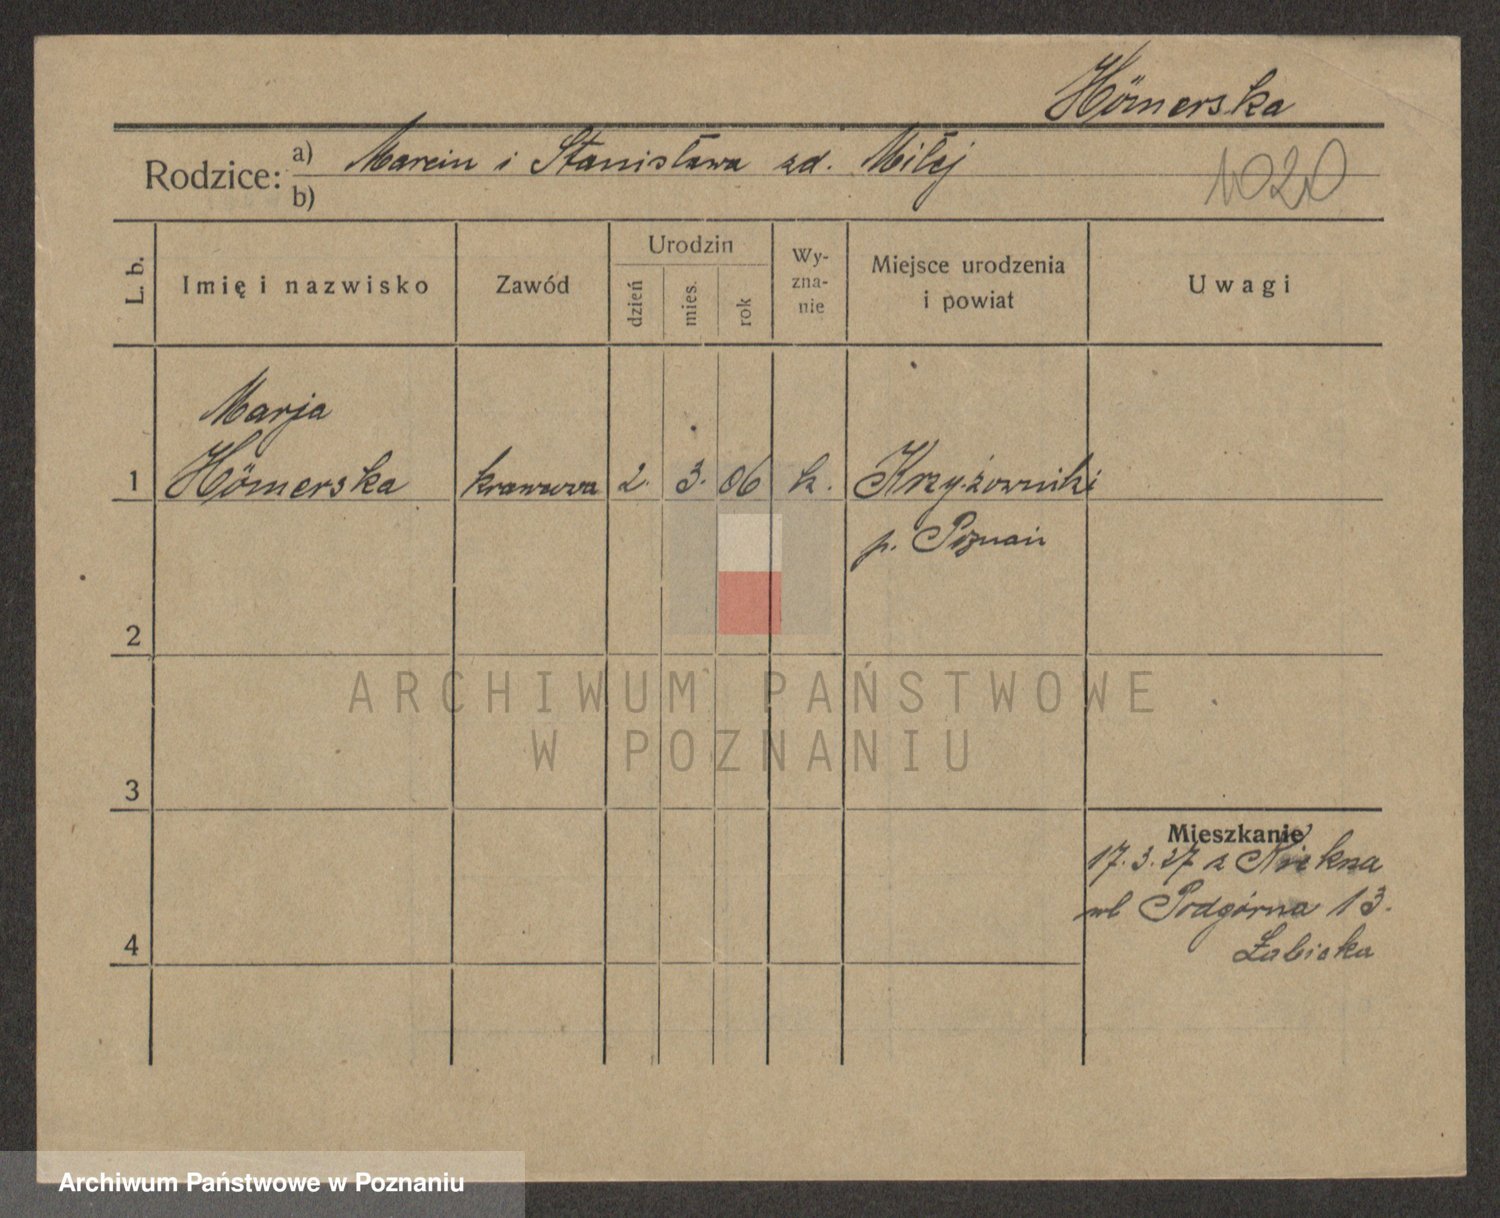 Hömerska
Rodzice: a) Marcin i Stanisława zd. Miłej
b)
1020
L. b.
Imię i nazwisko
Zawód
Urodzin
dzień
mies.
rok
Wy-
zna-
nie
Miejsce urodzenia
i powiat
Uwagi
Marja
1 Hömerska krawcowa 2. 3. 06 k. Krzyżowniki
p. Poznań
2
ARCHIWUM PAŃSTWOWE
W POZNANIU
3
Mieszkanie
17. 3. 37 z Kiekrza
ul Podgórna 13.
4
Archiwum Państwowe w Poznaniu